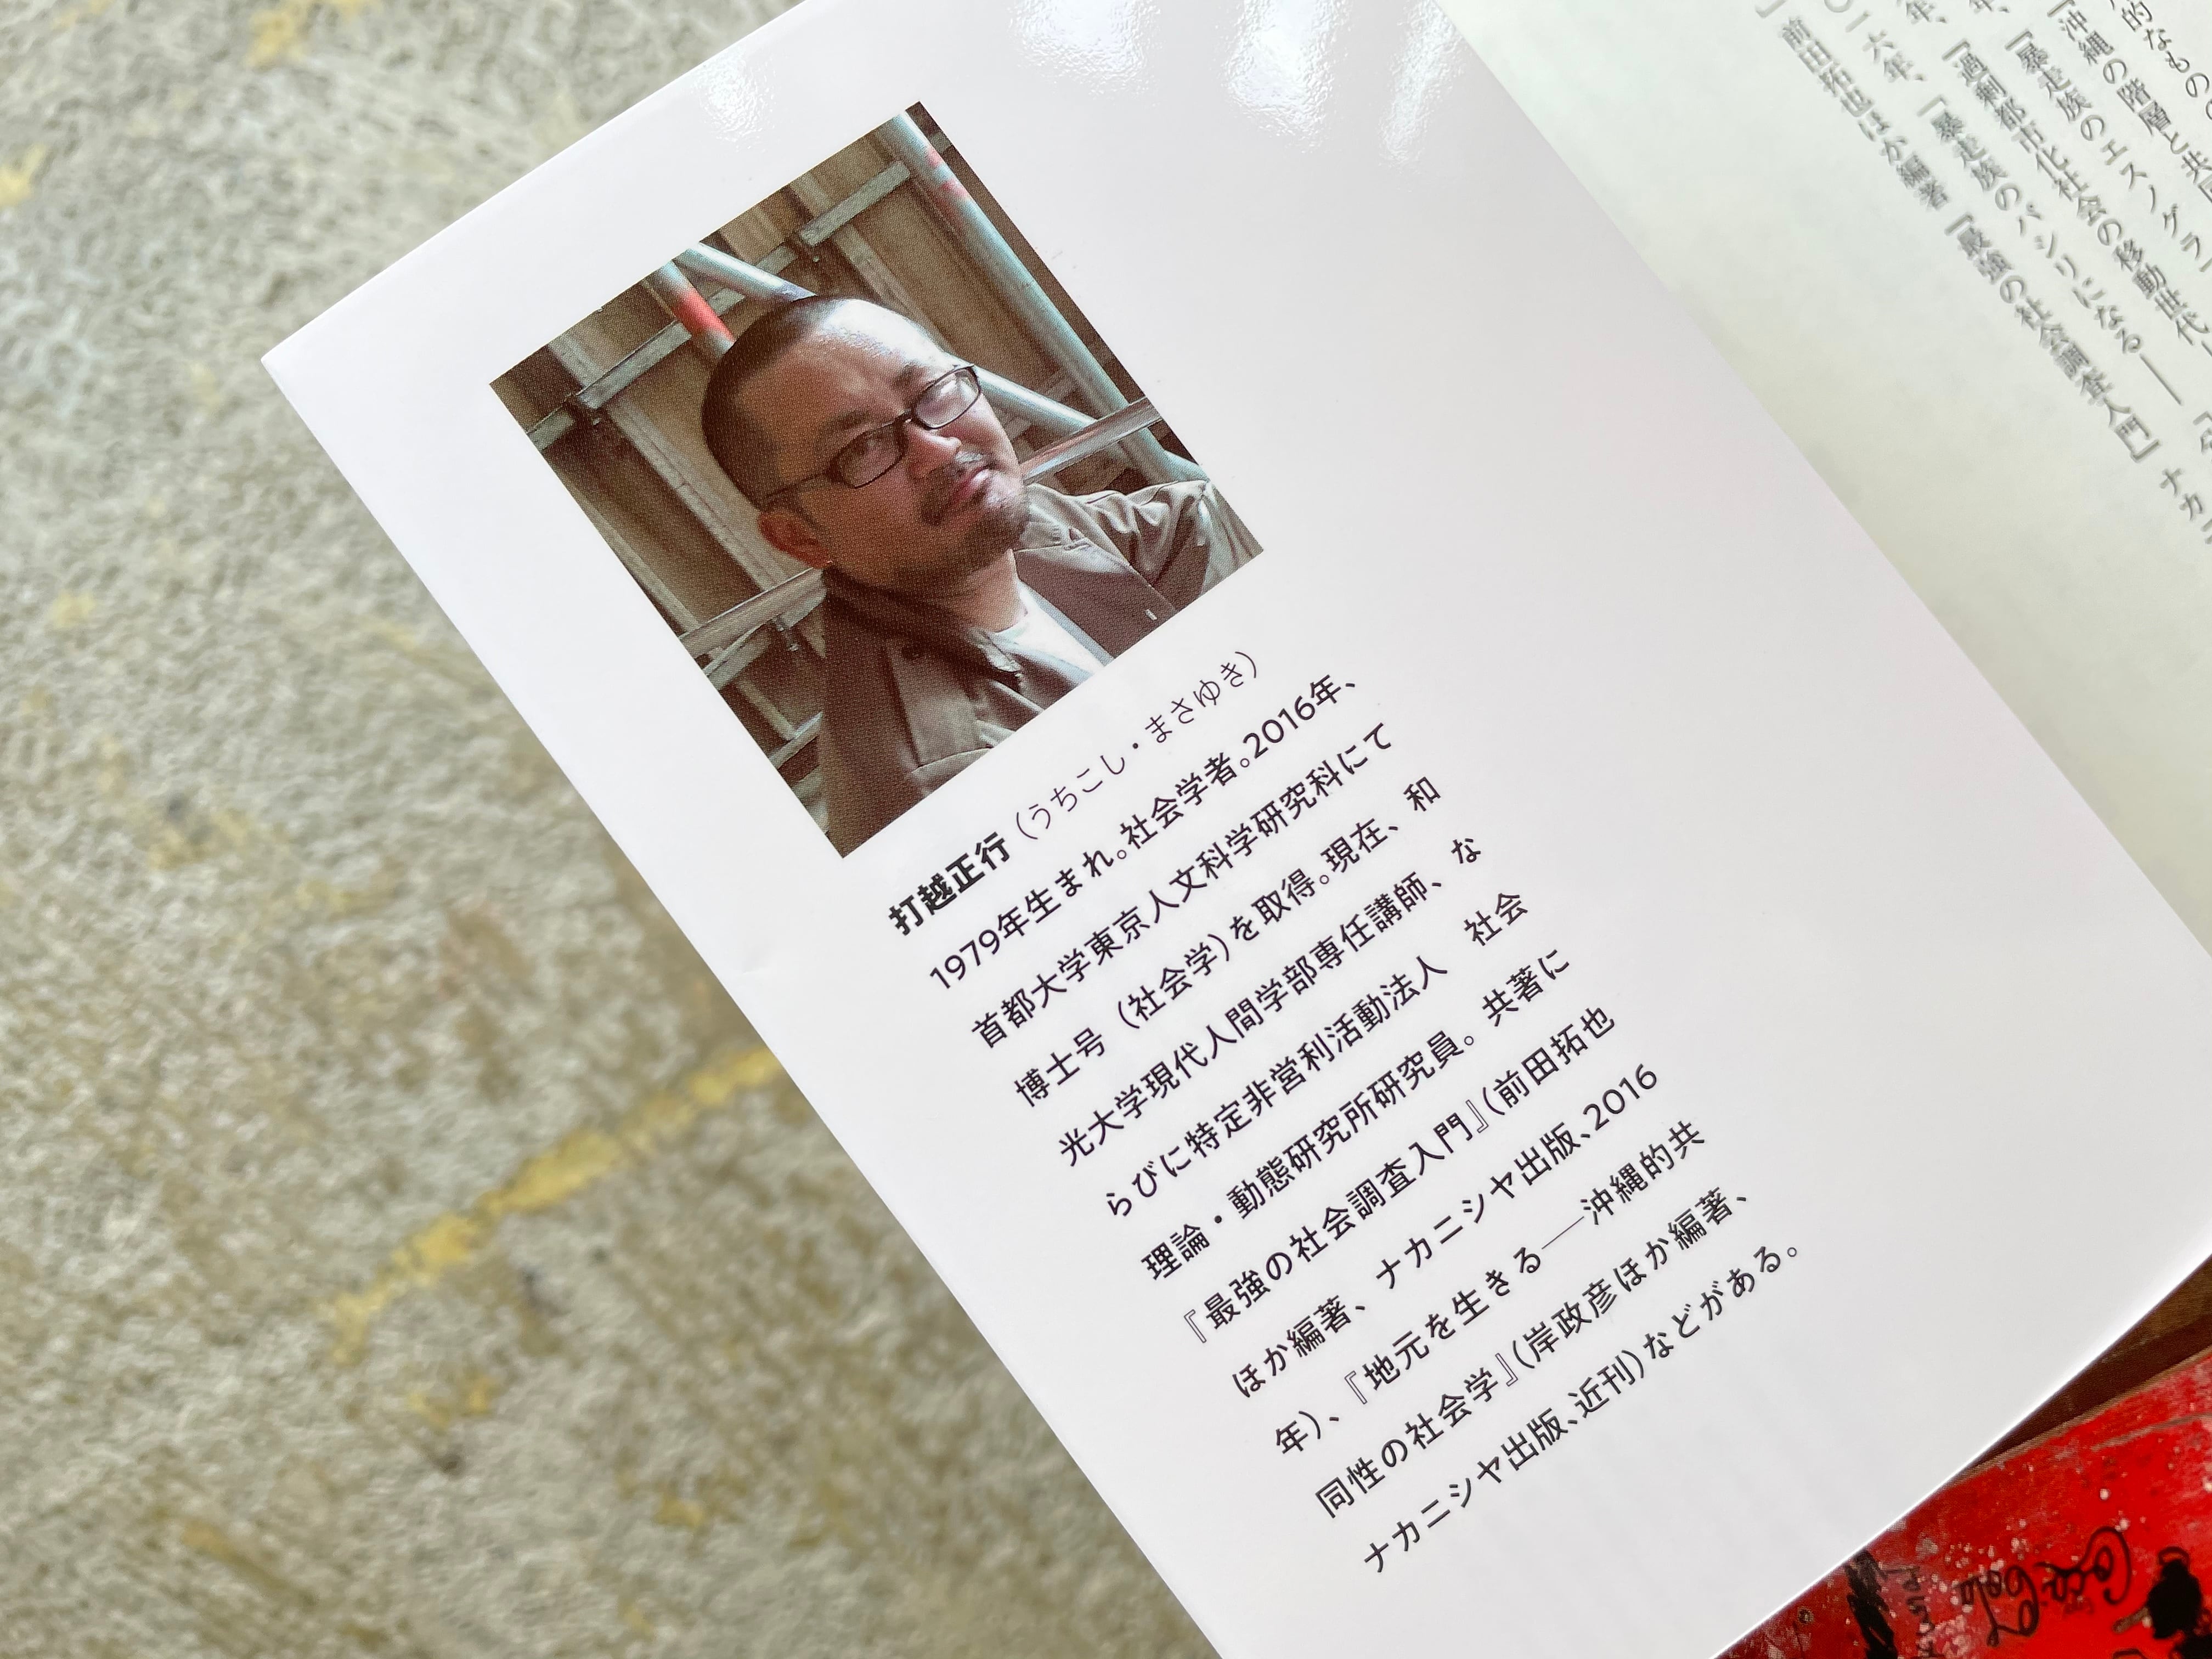 打越正行（うちこし・まさゆき）
1979年生まれ。社会学者。2016年、
首都大学東京人文科学研究科にて
博士号（社会学）を取得。現在、和
光大学現代人間学部専任講師、な
らびに特定非営利活動法人　社会
理論・動態研究所研究員。共著に
『最強の社会調査入門』（前田拓也
ほか編著、ナカニシヤ出版、2016
年）、『地元を生きる──沖縄的共
同性の社会学』（岸政彦ほか編著、
ナカニシヤ出版、近刊）などがある。
的なもの
『沖縄の階層と共同
『暴走族のエスノグラ
年、『過剰都市化社会の移動世代
〇一六年、「暴走族のパシリになる──
』前田拓也ほか編著『最強の社会調査入門』ナカニ
Coca-Cola